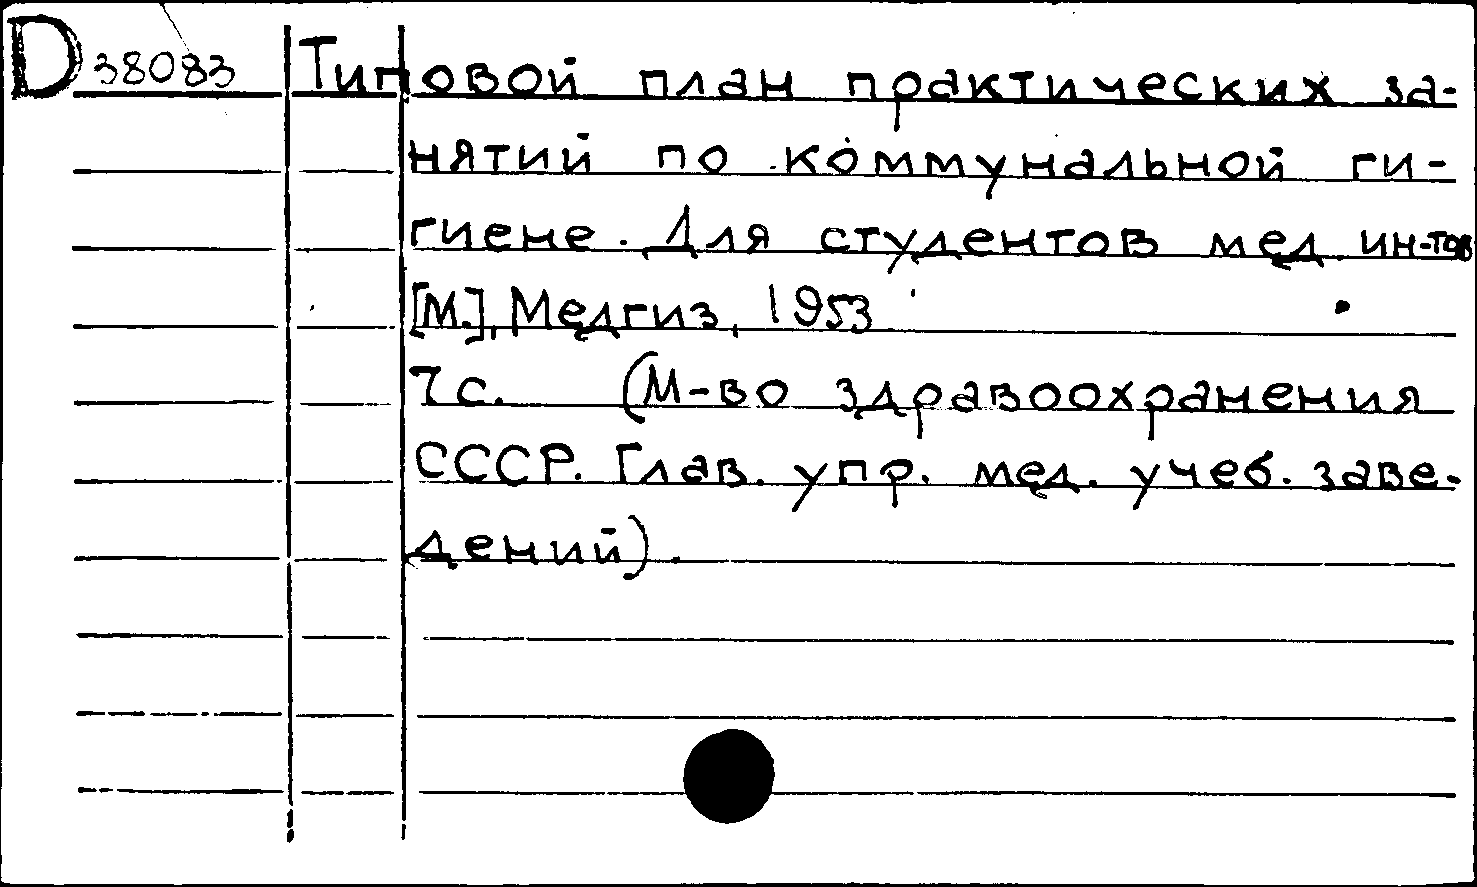 D 38083 Типовой план практических за-
нятий по коммунальной ги-
гиене. Для студентов мед. ин-тов
[М.], Медгиз, 1953
7 с. (М-во здравоохранения
СССР. Глав. упр. мед. учеб. заве-
дений).